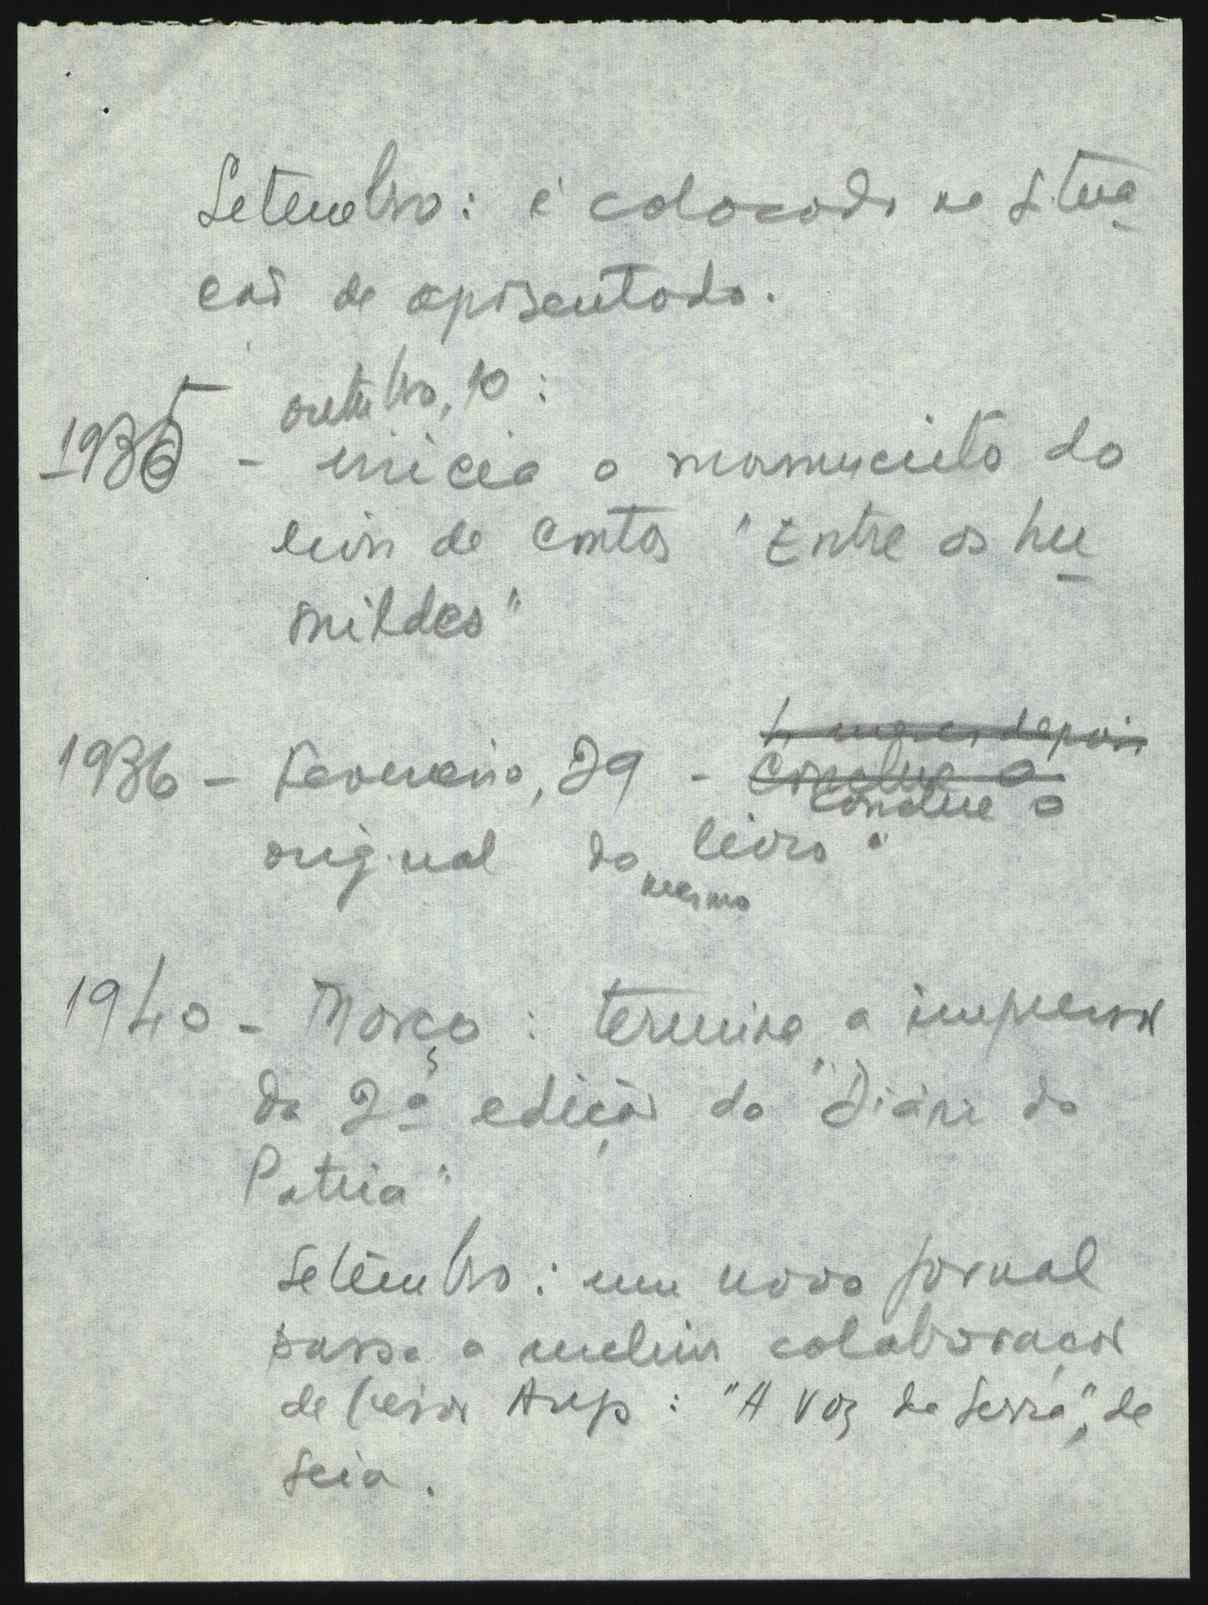 Setembro: é colocado na situa-
ção de aposentado.
outubro, 10:
1935 - inicia o manuscrito do
livro de contos "Entre os hu-
mildes"
4 meses depois
1936 - Fevereiro, 29 - conclue o
conclue o
original do livro.
mesmo
1940 - Março: termina a impressão
da 2ª edição do "Diário da
Patria"
Setembro: um novo jornal
passa a incluir colaboração
de Cesar Anjo: "A Voz da Serra", de
Seia.